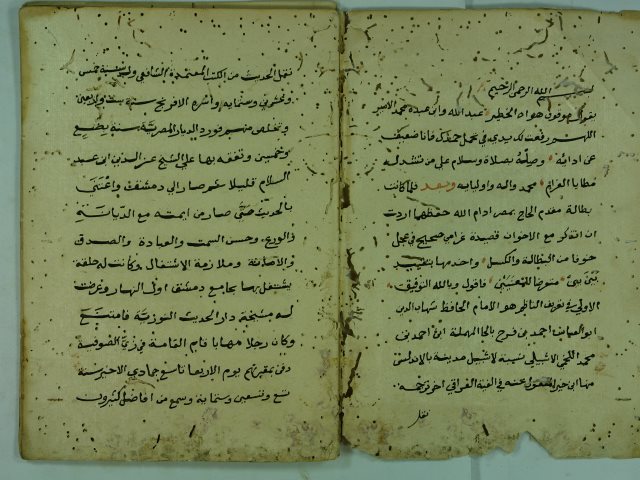 بسم الله الرحمن الرحيم
يقول عبد الله وابن عبده محمد الامير
اللهم رفعت لك يدي في محمل حملك فانا ضعيف
عن ادائه وصلة بصلاة وسلام على من تشد له
مطايا الغرام محمد واله واوليائه وبعد فلما كانت
بطالة مقدم الحاج بمصر ادام الله حفظها اردت
ان اتذكر مع الاخوان قصيدة غرامي صحيح في عجل
خوفا من البطالة والكسل
فاقول وبالله التوفيق
الاولى في تعريف الناظم هو الامام الحافظ شهاب الدين
ابو العباس احمد بن فرح بالحا المهملة ابن احمد بن
محمد اللخمي الاشبيلي نسبة لاشبيل مدينة بالاندلس
منها ابن خير المنقول عنه في الفية العراقي اخر ترجمة
نقل
نقل الحديث من الكتب المعتمدة الشافعي ولد سنة خمس
وعشرين وستمايه واسره الافرنج سنة ست واربعين
وتخلص منهم فورد الديار المصرية سنة بضع
وخمسين وتفقه بها على الشيخ عز الدين ابن عبد
السلام قليلا ثم صار الى دمشق واعتنى
بالحديث حتى صار من ايمته مع الديانة
والورع وحسن السمت والعبادة والصدق
وملازمة الاشتغال وكانت له حلقة
يشتغل بها بجامع دمشق اول النهار وعرضت
له مشيخة دار الحديث النورية فامتنع
وكان رجلا مهابا قايم القامة في زي الصوفية
يوم الاربعا تاسع جمادي الاخير سنة
تسع وتسعين وستماية وسمع من افاضل كثيرون